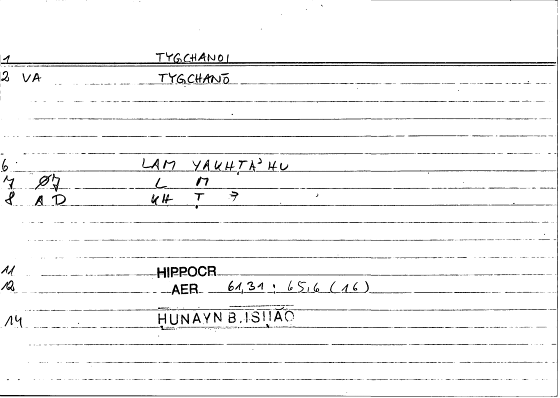 1 TYGCHANO1
2 VA TYGCHANŌ
6 LAM YAKHṬAʾHU
7 Ø7 L M
8 A D KH Ṭ ⁊
11 HIPPOCR
12 AER 61,31 : 65,6 (16)
14 ḤUNAYN B. ISḤĀQ